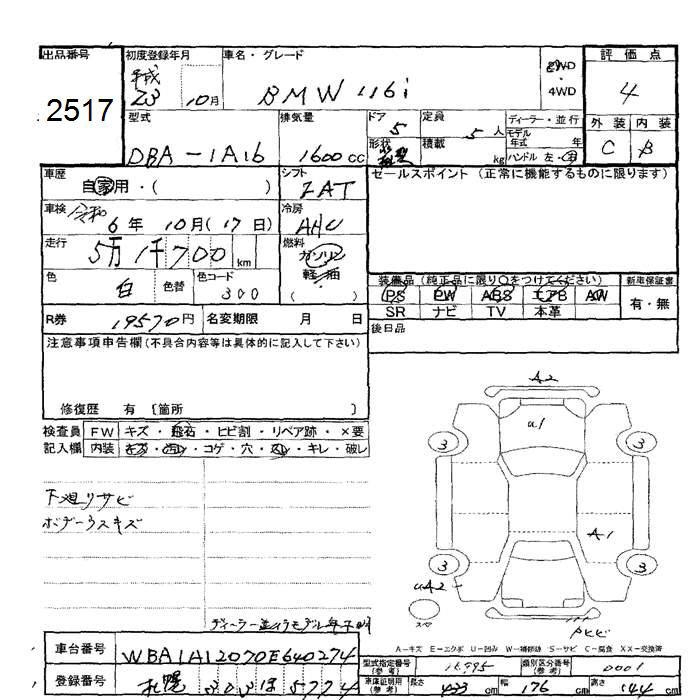 出品番号 初度登録年月 車名・グレード 評価点
2517 平成 23 10月 BMW 116i 2WD・4WD 4
型式 排気量 ドア 定員 ディーラー・並行 外装 内装
DBA-1A16 1600cc 5 5人 モデル年式 年 C B
形状 積載 kg ハンドル 左・右
車歴 シフト セールスポイント (正常に機能するものに限ります)
自家用・( ) 7AT
車検 令和 6年 10月(17日) 冷房 AAC
走行 5万1千700km 燃料 ガソリン 軽油 ( )
色 白 色替 色コード 300
装備品 (純正品に限り○をつけてください) 新車保証書
PS PW ABS エアB AW 有・無
SR ナビ TV 本革
R券 19570円 名変期限 月 日 後日品
注意事項申告欄(不具合内容等は具体的に記入して下さい)
修復歴 有 [箇所 ]
検査員 FW キズ・飛石・ヒビ割・リペア跡・×要
記入欄 内装 キズ・汚レ・コゲ・穴・スレ・キレ・破レ
A2
U1
3 3
下廻リサビ
ボデーうスキズ
A1
3 3
UA2
スペ
ディーラー並行モデル年不明
A-キズ E-エクボ U-凹み W-補修跡 S-サビ C-腐食 XX-交換済
車台番号 WBA1A12070E640274
型式指定番号(参考) 16995 類別区分番号(参考) 0001
登録番号 札幌 303 ほ 5774
車庫証明用(参考) 長さ 433cm 幅 176cm 高さ 144cm